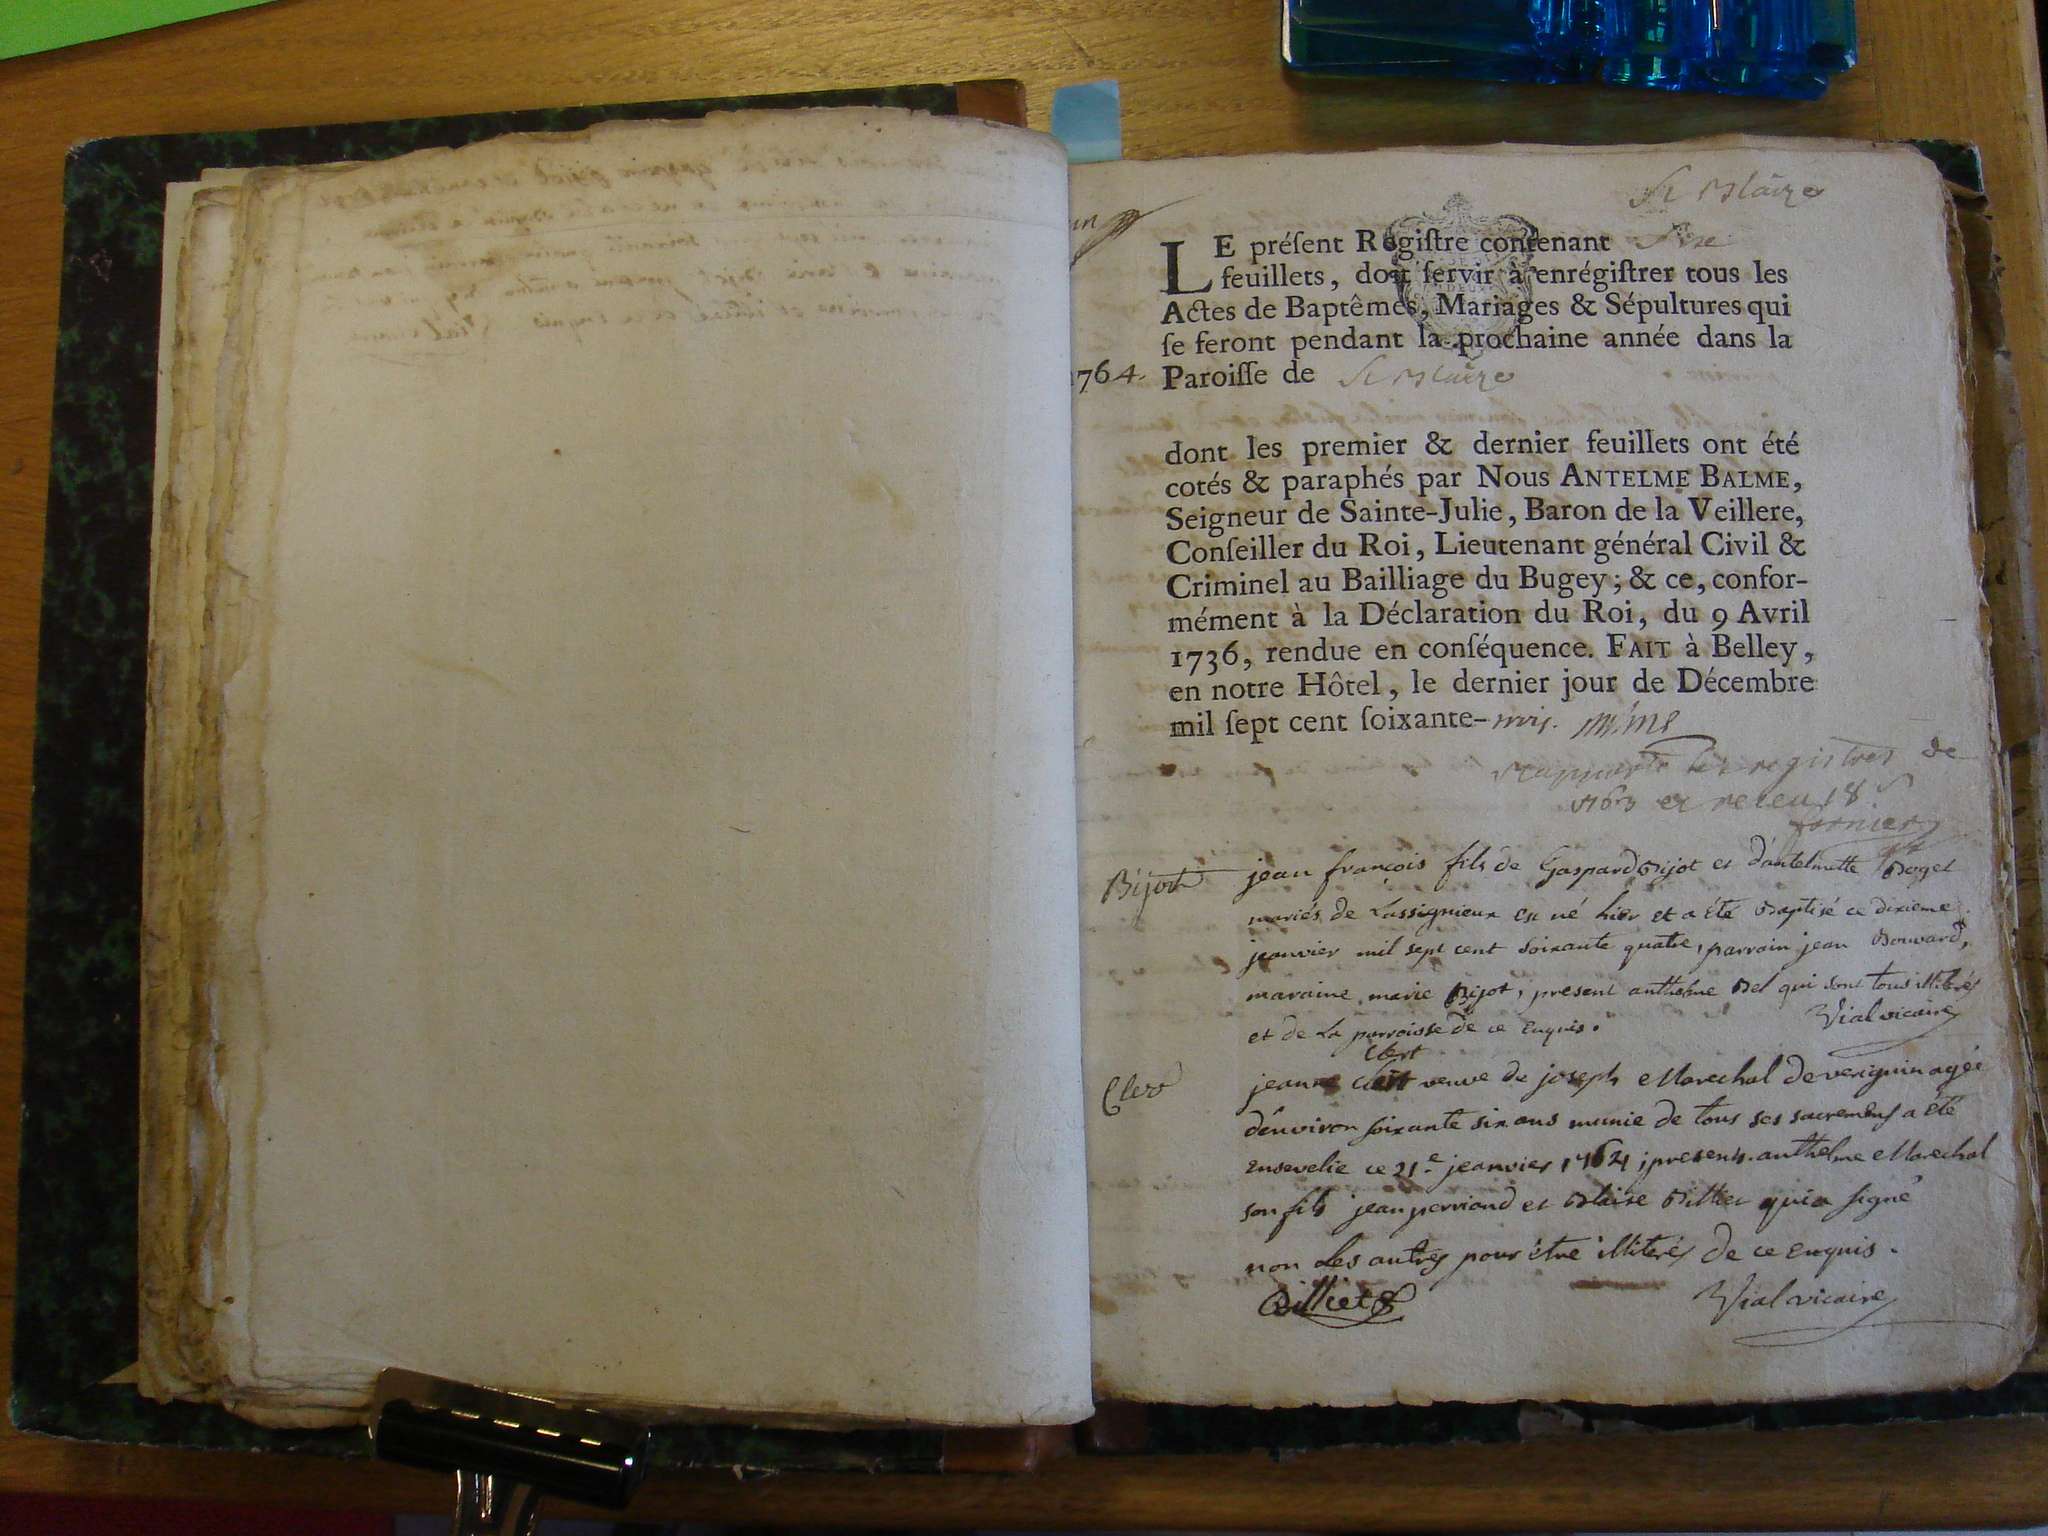 St Blaize
LE préſent Regiſtre contenant Size
feuillets, doit ſervir à enrégiſtrer tous les
Actes de Baptêmes, Mariages & Sépultures qui
ſe feront pendant la prochaine année dans la
1764. Paroiſſe de St Blaize
dont les premier & dernier feuillets ont été
cotés & paraphés par Nous ANTELME BALME,
Seigneur de Sainte-Julie, Baron de la Veillere,
Conſeiller du Roi, Lieutenant général Civil &
Criminel au Bailliage du Bugey; & ce, confor-
mément à la Déclaration du Roi, du 9 Avril
1736, rendue en conſéquence. FAIT à Belley,
en notre Hôtel, le dernier jour de Décembre
mil ſept cent ſoixante-trois.
les registres de
1763 et receu 18 s
fornier
Bijot jean françois fils de Gaspard Bijot et d'antelmette Boget
mariés de Lassignieux est né hier et a été Baptisé ce dixieme
jeanvier mil sept cent soixante quatre, parrain jean Bouvard,
maraine marie Bijot, present anthelme Bel qui sont tous illiterés
et de La parroisse de ce enquis. Vial vicaire
Clert
Cler jeanne veuve de joseph Marechal de verignin agée
d'environ soixante six ans munie de tous ses sacremens a été
ensevelie ce 21e jeanvier 1764 ; presents anthelme Marechal
son fils jean perriand et Blaise Billiet qui a signé
non Les autres pour être illiterés de ce enquis.
Billiet Vial vicaire